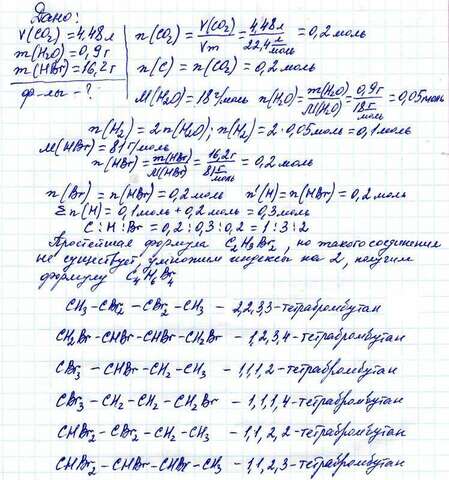 Дано:
V(CO₂)=4,48л
m(H₂O)=0,9г
m(HBr)=16,2г
ф-лы - ?
n(CO₂)=V(CO₂)/Vm=4,48л/22,4 л/моль=0,2 моль
n(C) = n(CO₂)=0,2 моль
M(H₂O)=18г/моль n(H₂O)=m(H₂O)/M(H₂O)=0,9г/18 г/моль=0,05моль
n(H₂) = 2n(H₂O); n(H₂) = 2·0,05моль=0,1моль
M(HBr)=81г/моль
n(HBr)=m(HBr)/M(HBr)=16,2г/81 г/моль=0,2 моль
n(Br)= n(HBr)=0,2 моль n'(H)=n(HBr)=0,2 моль
Σn(H)=0,1моль+0,2 моль=0,3моль
C:H:Br=0,2:0,3:0,2=1:3:2
Простейшая формула C₂H₃Br₂, но такого соединения
не существует, умножим индексы на 2, получим
формулу C₄H₆Br₄
CH₃-CBr₂-CBr₂-CH₃ - 2,2,3,3-тетрабромбутан
CH₂Br-CHBr-CHBr-CH₂Br - 1,2,3,4-тетрабромбутан
CBr₃-CHBr-CH₂-CH₃ - 1,1,1,2-тетрабромбутан
CBr₃-CH₂-CH₂-CH₂Br - 1,1,1,4-тетрабромбутан
CHBr₂-CBr₂-CH₂-CH₃ - 1,1,2,2-тетрабромбутан
CHBr₂-CHBr-CHBr-CH₃ - 1,1,2,3-тетрабромбутан